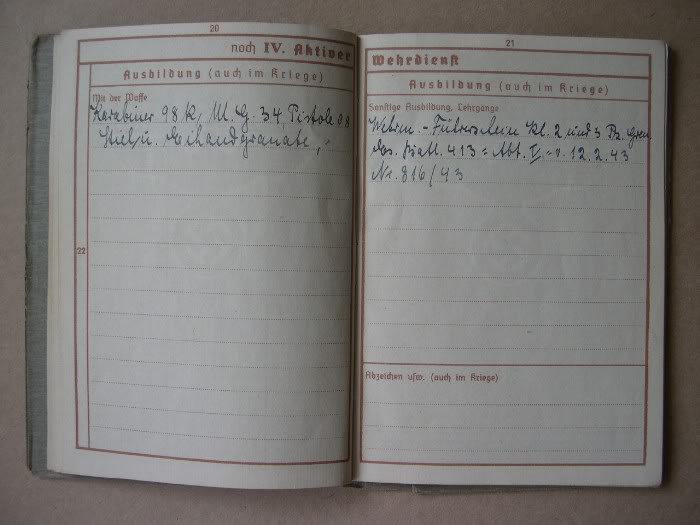 20
noch IV. Aktiver
Ausbildung (auch im Kriege)
Mit der Waffe
Karabiner 98 k, M. G. 34, Pistole 08
Stiel u. Eihandgranate,
22
21
Wehrdienst
Ausbildung (auch im Kriege)
Sonstige Ausbildung, Lehrgänge
Wehrm. - Führerschein Kl. 2 und 3 Pz. Gren
Batl. 413 = Abt. V = v. 12. 2. 43
Nr. 816/43
Abzeichen usw. (auch im Kriege)